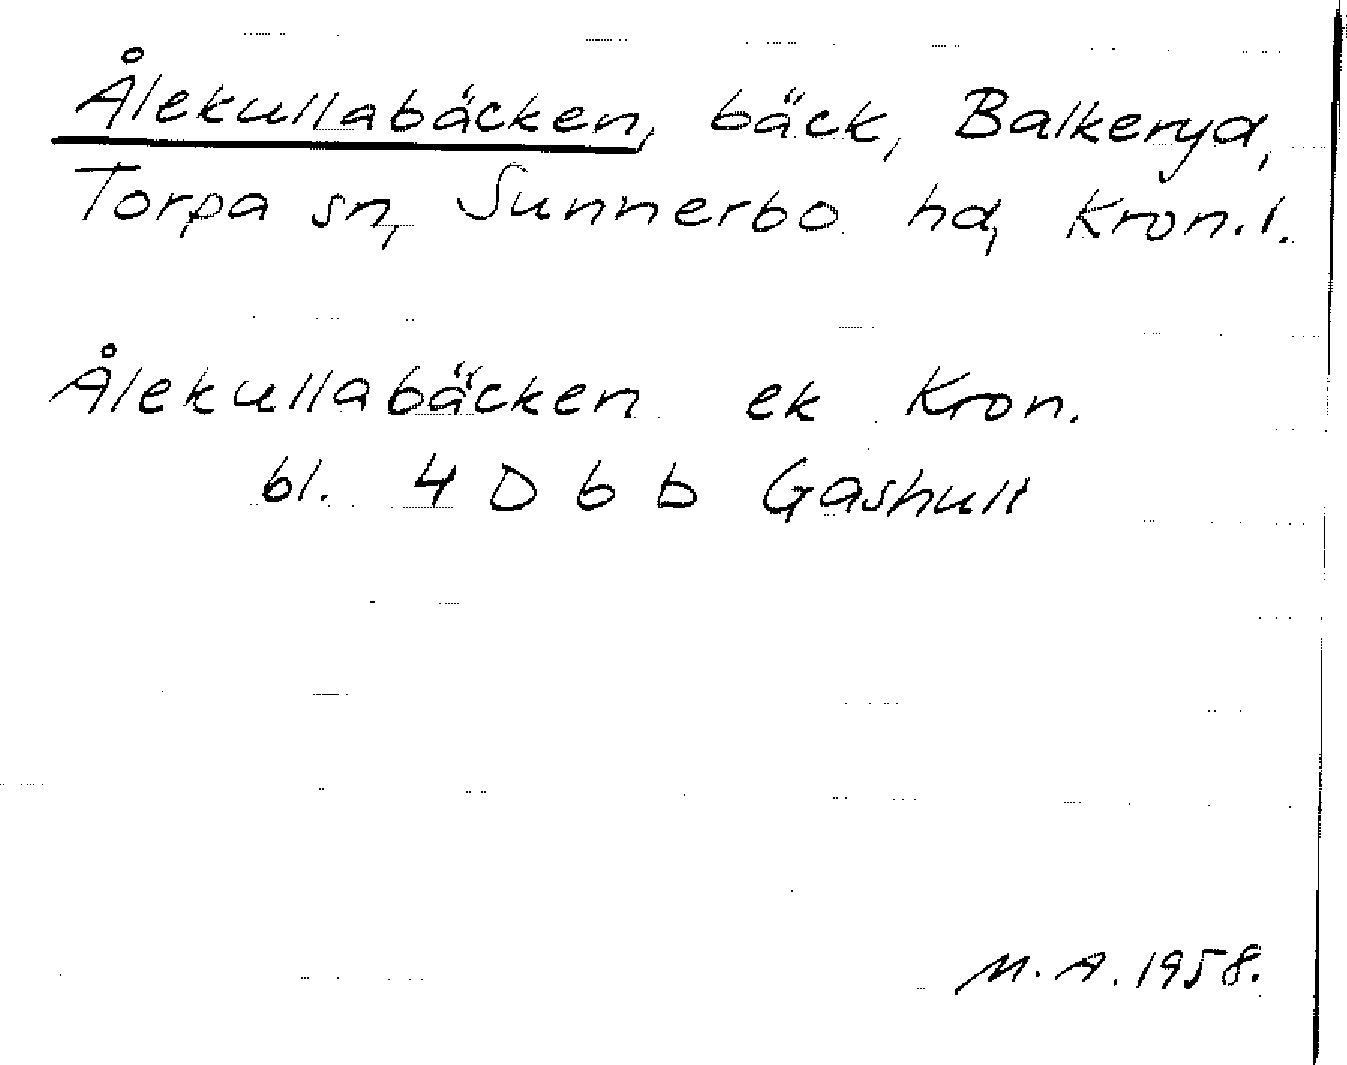 Ålekullabäcken, bäck, Balkeryd,
Torpa sn, Sunnerbo hd, Kron.l.
Ålekullabäcken ek Kron.
bl. 4 D 6 b Gåshult
M.A. 1958.